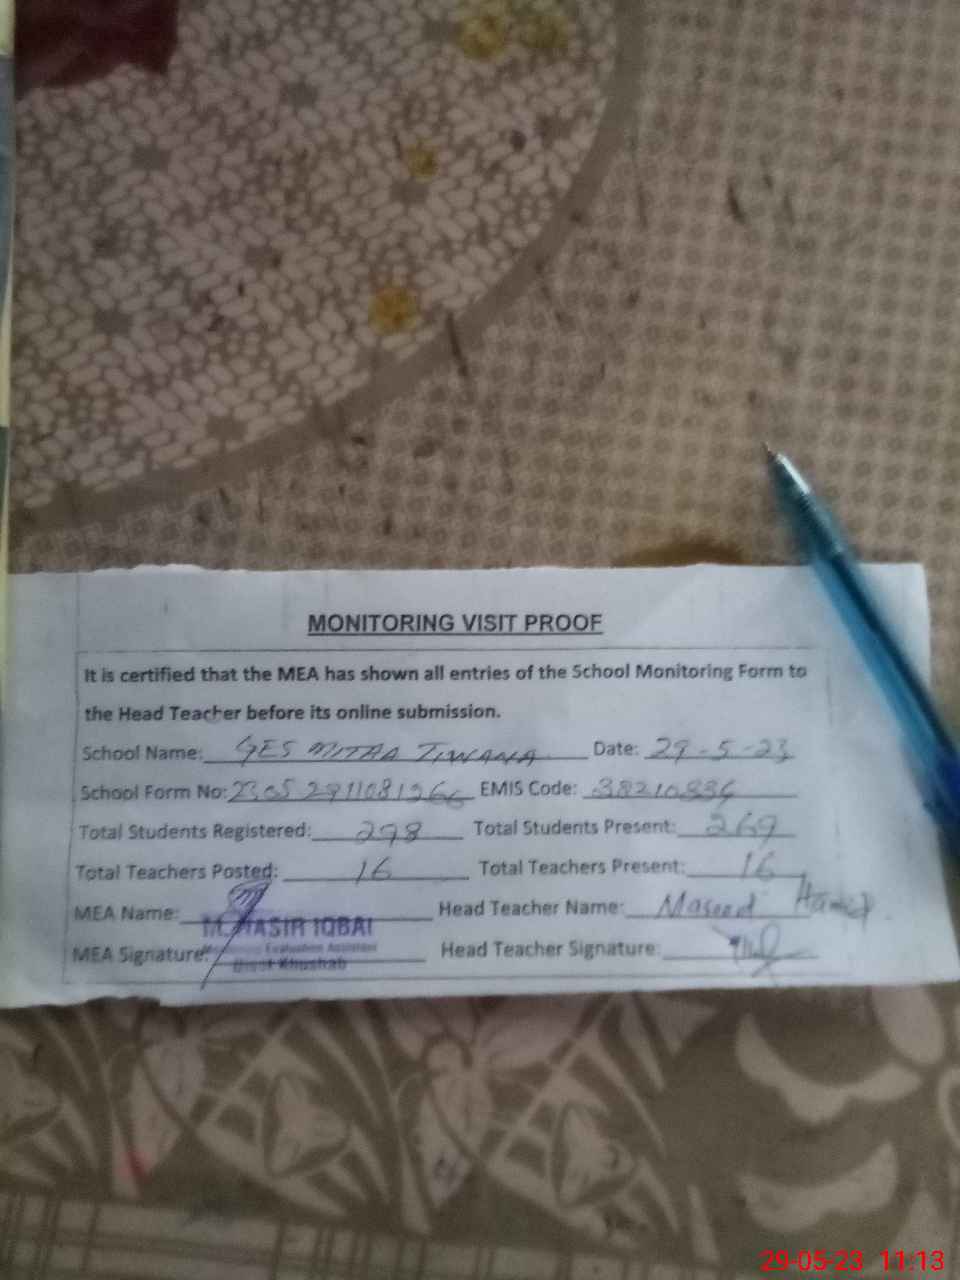 MONITORING VISIT PROOF
It is certified that the MEA has shown all entries of the School Monitoring Form to
the Head Teacher before its online submission.
School Name: GES MITHA TIWANA Date: 29-5-23
School Form No: EMIS Code:
Total Students Registered: 298 Total Students Present: 269
Total Teachers Posted: 16 Total Teachers Present: 16
MEA Name: IQBAL Head Teacher Name: Masood Hamid
Evaluation Assistant
MEA Signature: Head Teacher Signature:
Distt Khushab
29-05-23 11:13